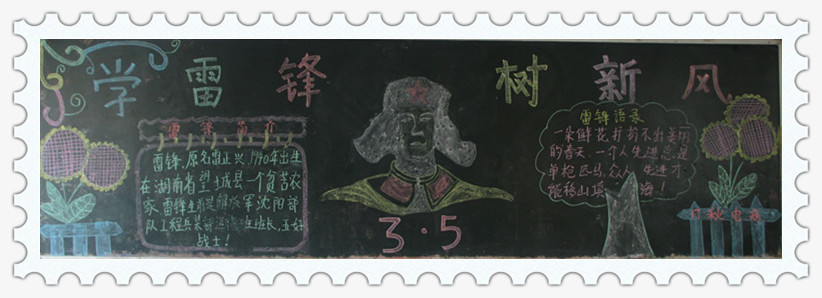 学雷锋 树新风
雷锋简介
雷锋,原名雷正兴,1940年出生
在湖南省望城县一个贫苦农
家,雷锋生前是解放军沈阳部
队工程兵某部运输班班长,五好
战士!
3·5
雷锋语录
一朵鲜花打扮不出美丽
的春天,一个人先进总是
单枪匹马,众人先进才
能移山填海!